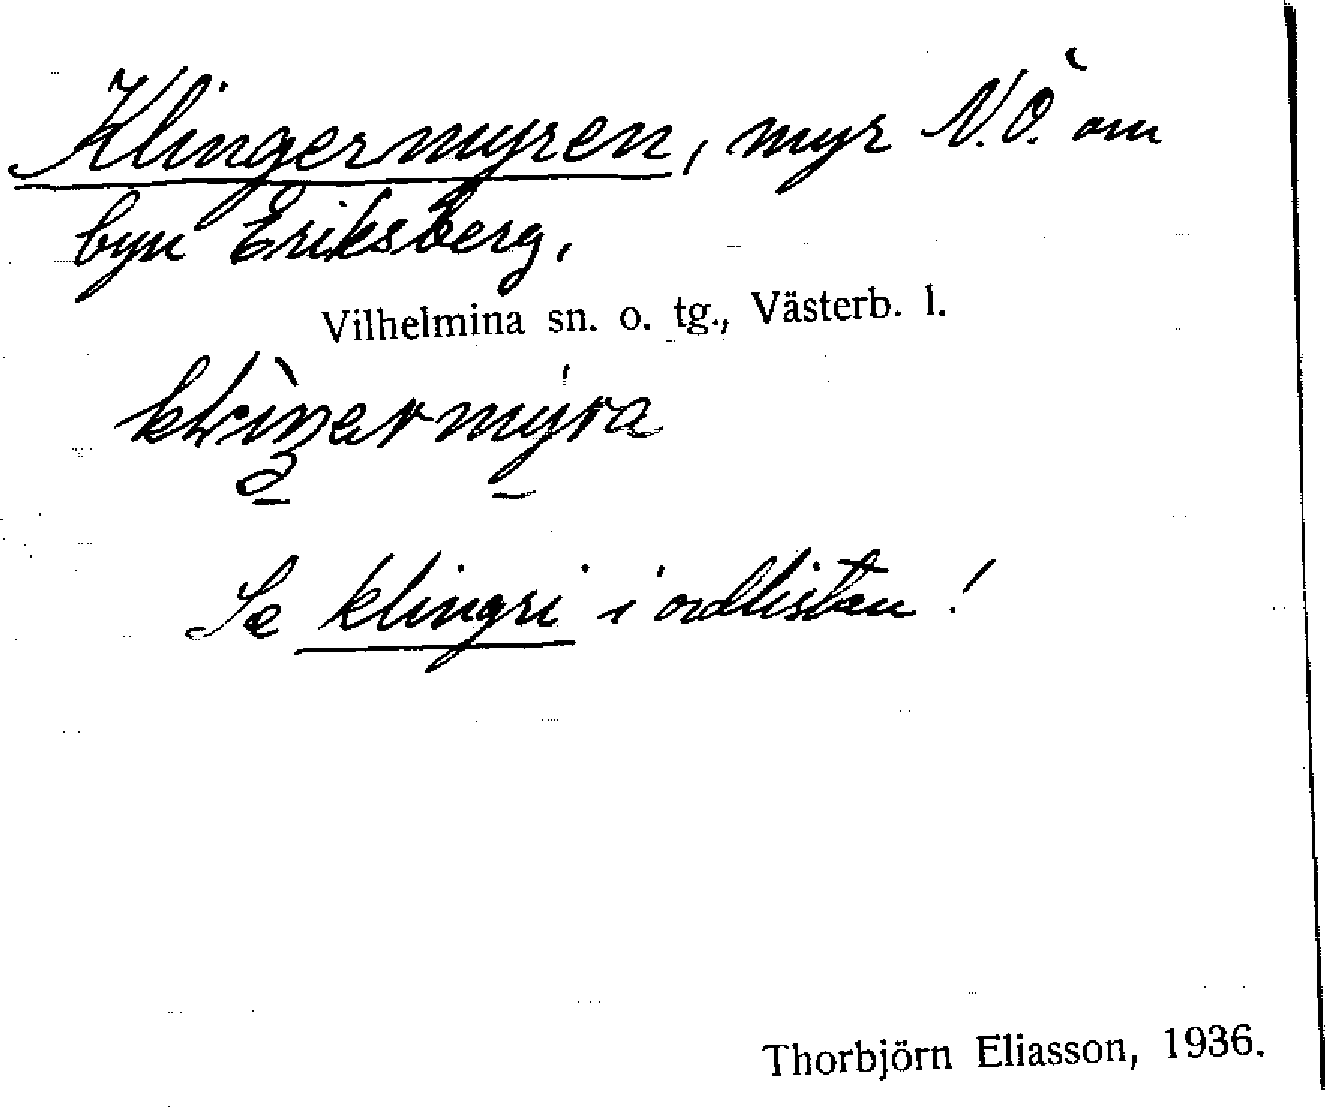 Klingermyren, myr N.Ö. om
byn Eriksberg,
Vilhelmina sn. o. tg., Västerb. l.
Se klingri i ordlistan!
Thorbjörn Eliasson, 1936.